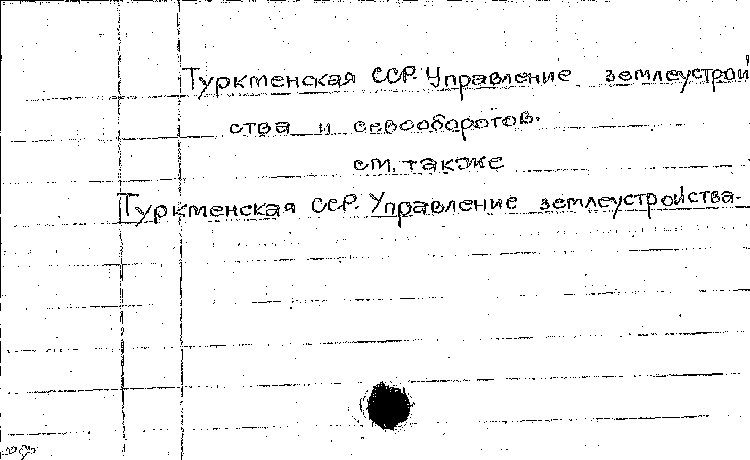 Туркменская ССР. Управление землеустрой
ства и севооборотов.
см. также
Туркменская ССР. Управление землеустройства.